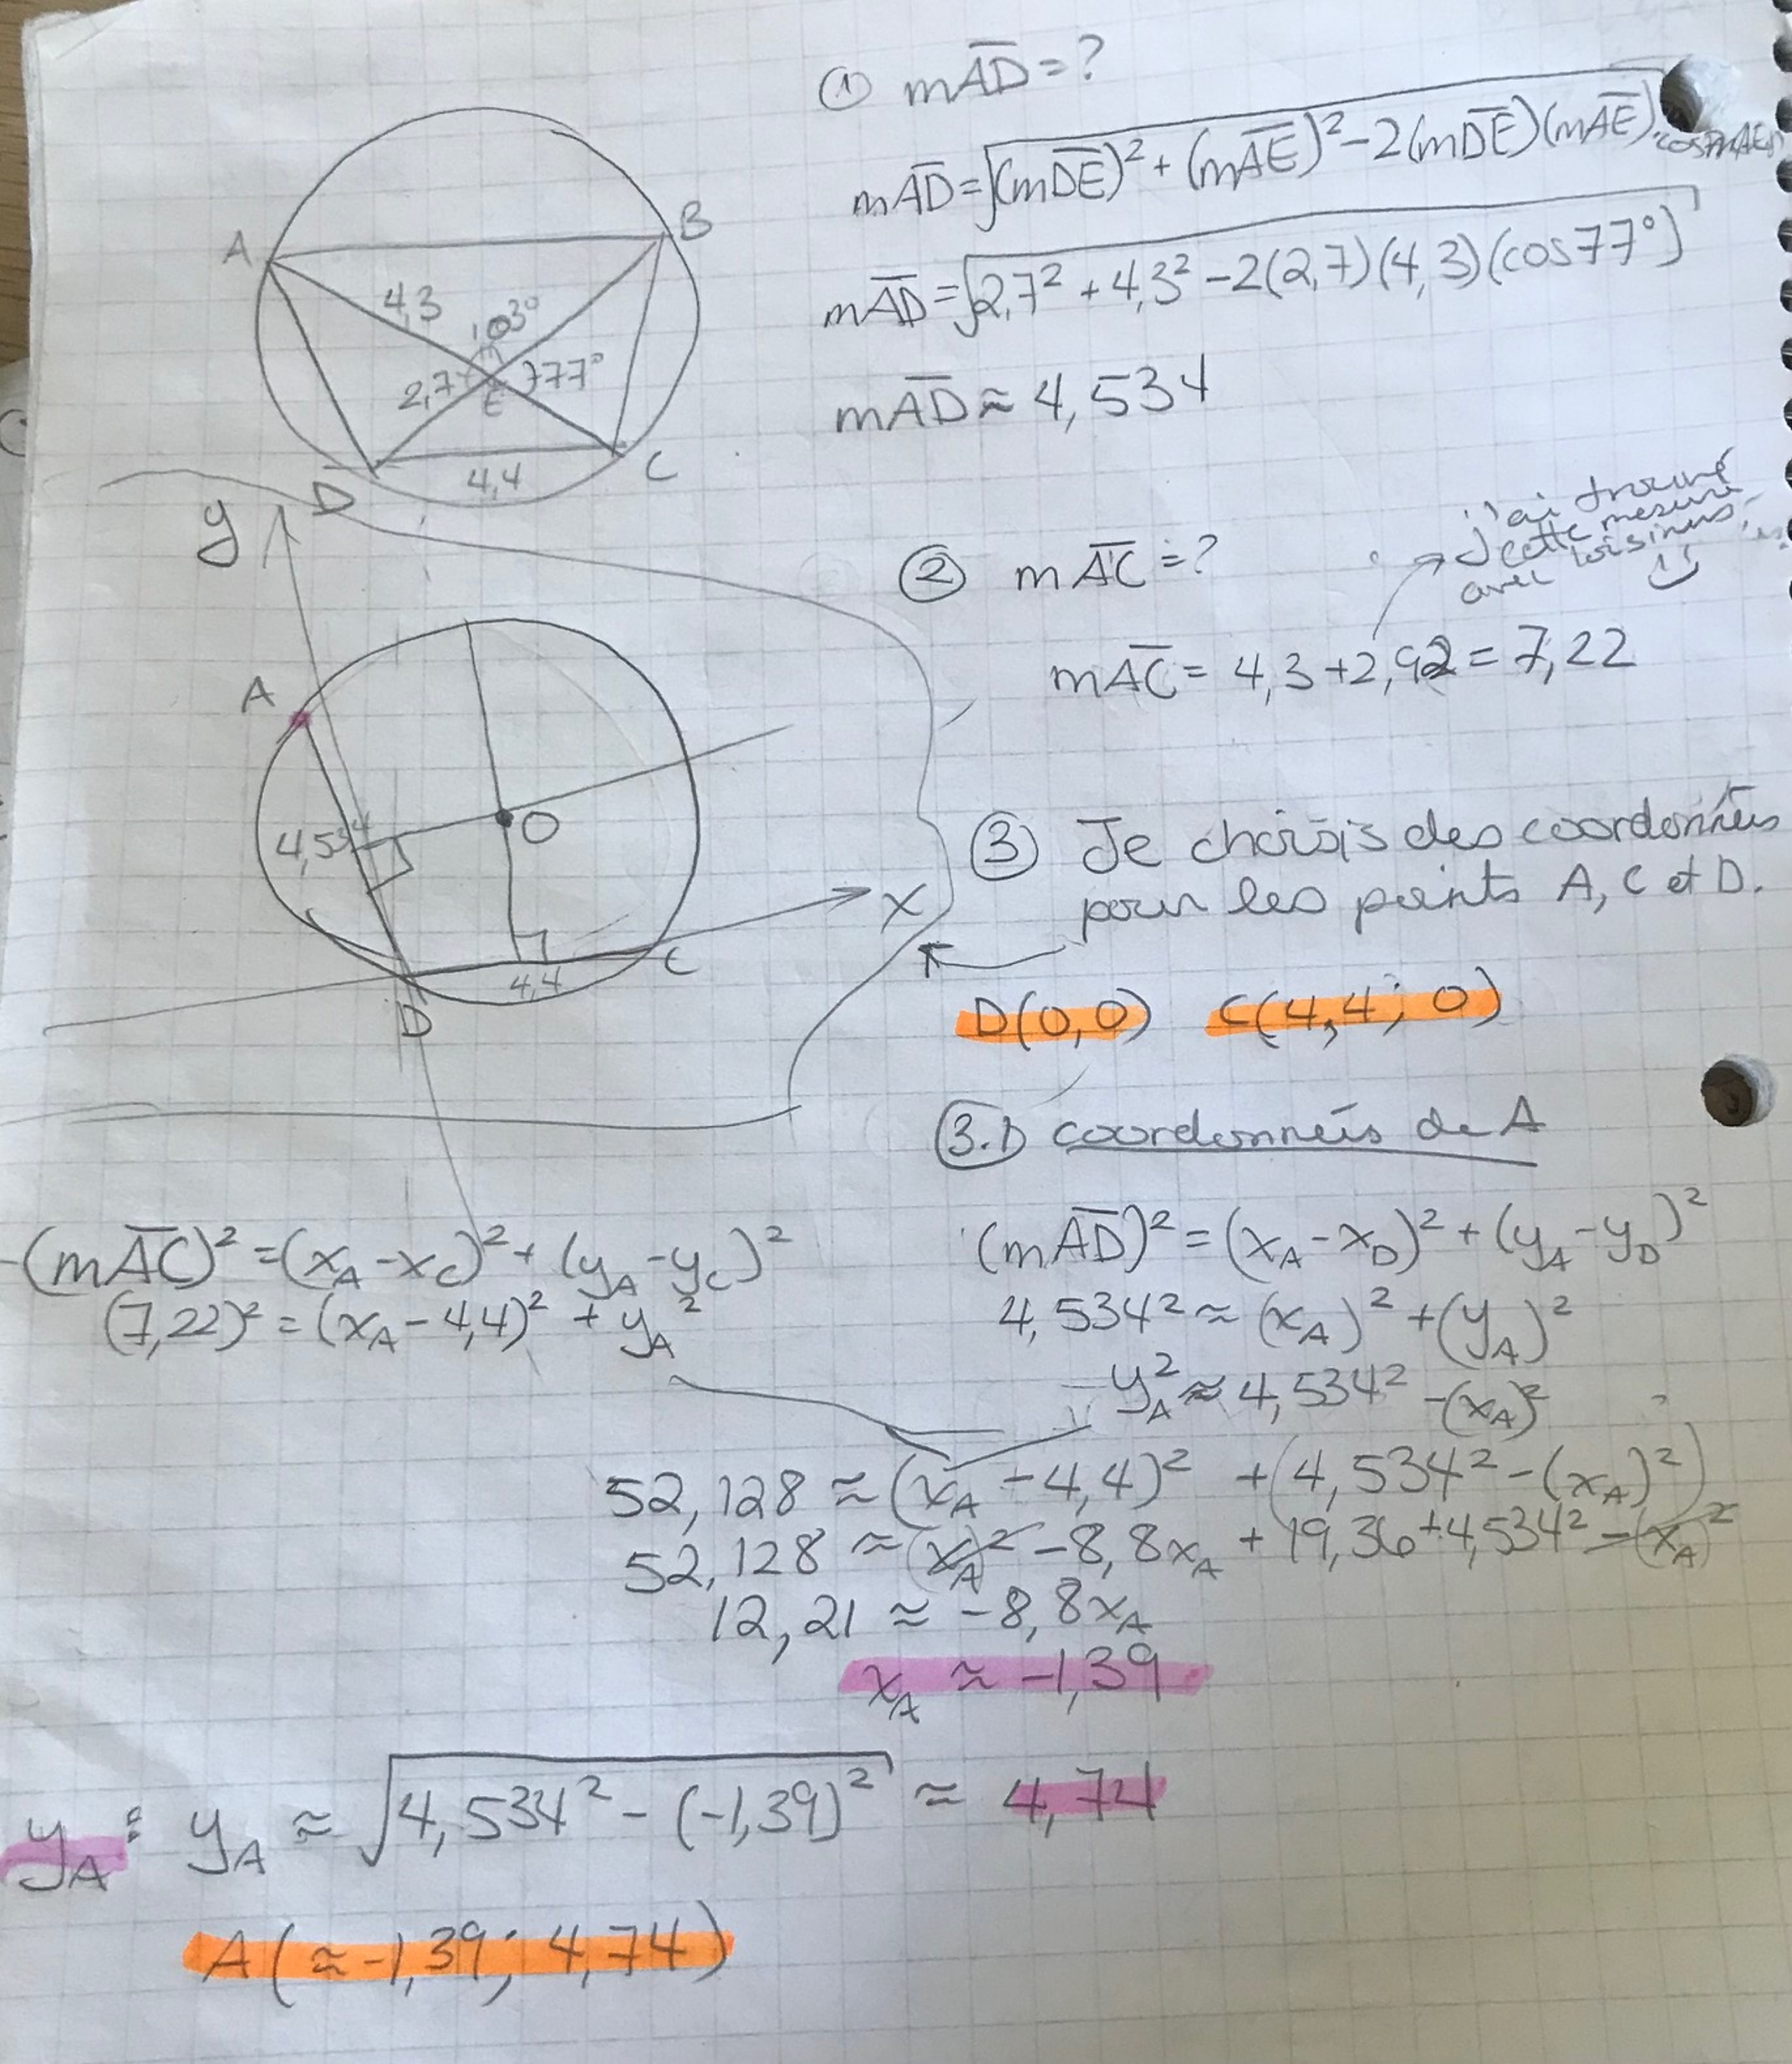 ① mAD=?
mAD=√(mDE)²+(mAE)²-2(mDE)(mAE).
mAD=√2,7²+4,3²-2(2,7)(4,3)(cos77°)
mAD≈4,534
A
B
4,3
103°
2,7
77°
E
D
4,4
C
② mAC=?
→ j'ai trouvé
cette mesure
avec loi sinus,
mAC=4,3+2,92=7,22
y
A
4,534
O
x
D
4,4
C
③ Je choisis des coordonnées
pour les points A, C et D.
D(0,0) C(4,4; 0)
3.1 coordonnées de A
(mAC)²=(xA-xC)²+(yA-yC)²
(7,22)²=(xA-4,4)²+yA²
(mAD)²=(xA-xD)²+(yA-yD)²
4,534²≈(xA)²+(yA)²
yA²≈4,534²-(xA)²
52,128≈(xA-4,4)²+(4,534²-(xA)²)
52,128≈(xA)²-8,8xA+19,36+4,534²-(xA)²
12,21≈-8,8xA
xA≈-1,39
yA: yA≈√4,534²-(-1,39)²≈4,74
A(≈-1,39; 4,74)